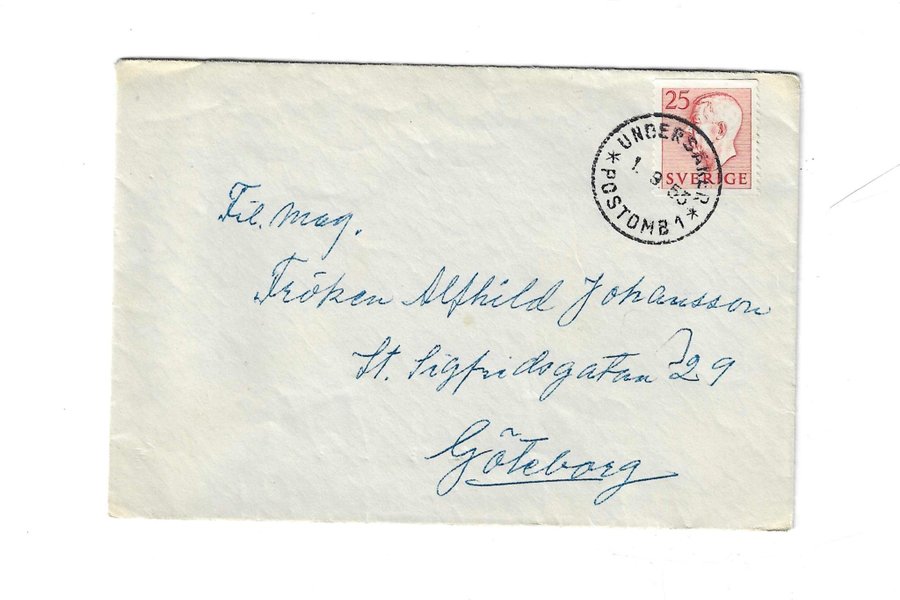 25
SVERIGE
UNDERSÅKER
1. 9. 53
* POSTOMB 1 *
Fil. mag.
Fröken Alfhild Johansson
St. Sigfridsgatan 29
Göteborg